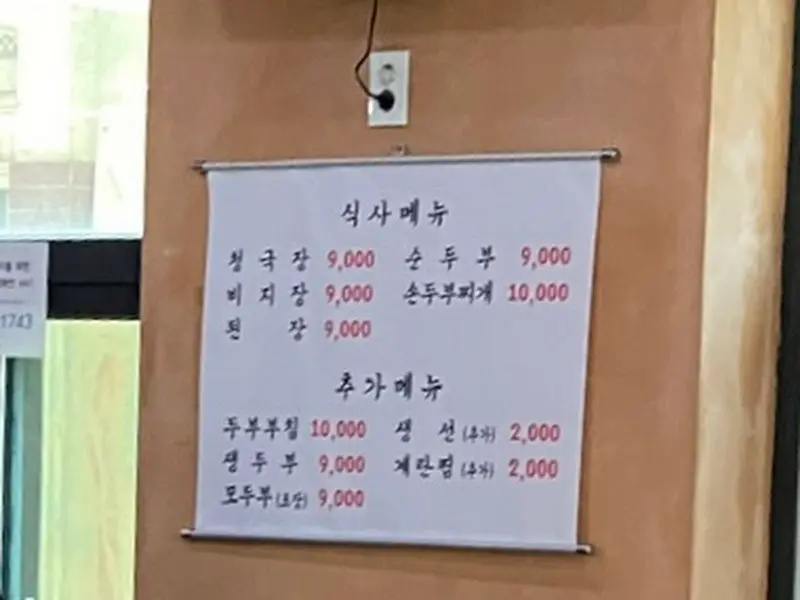 식사메뉴
청국장 9,000 순두부 9,000
비지장 9,000 손두부찌개 10,000
된장 9,000
추가메뉴
두부부침 10,000 생선(추가) 2,000
생두부 9,000 계란찜(추가) 2,000
모두부(포장) 9,000
1743